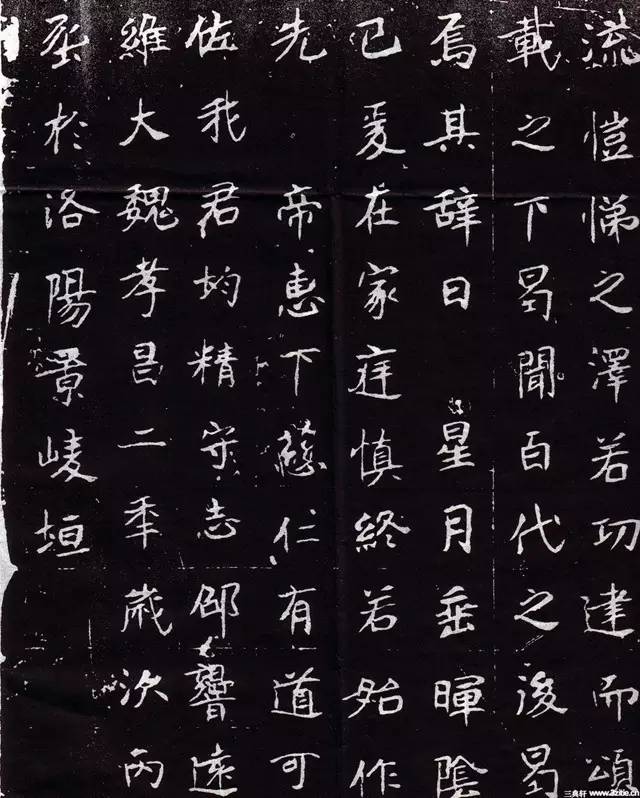 流愷悌之澤若功建而頌
載之下曷聞百代之後曷
焉其辭曰 星月垂暉陰
已爰在家庭慎終若始作
先 帝惠下慈仁有道可
佐我君均精守志邵響遠
維大魏孝昌二秊歲次丙
於洛陽景崚垣
三典轩 www.3zitie.cn